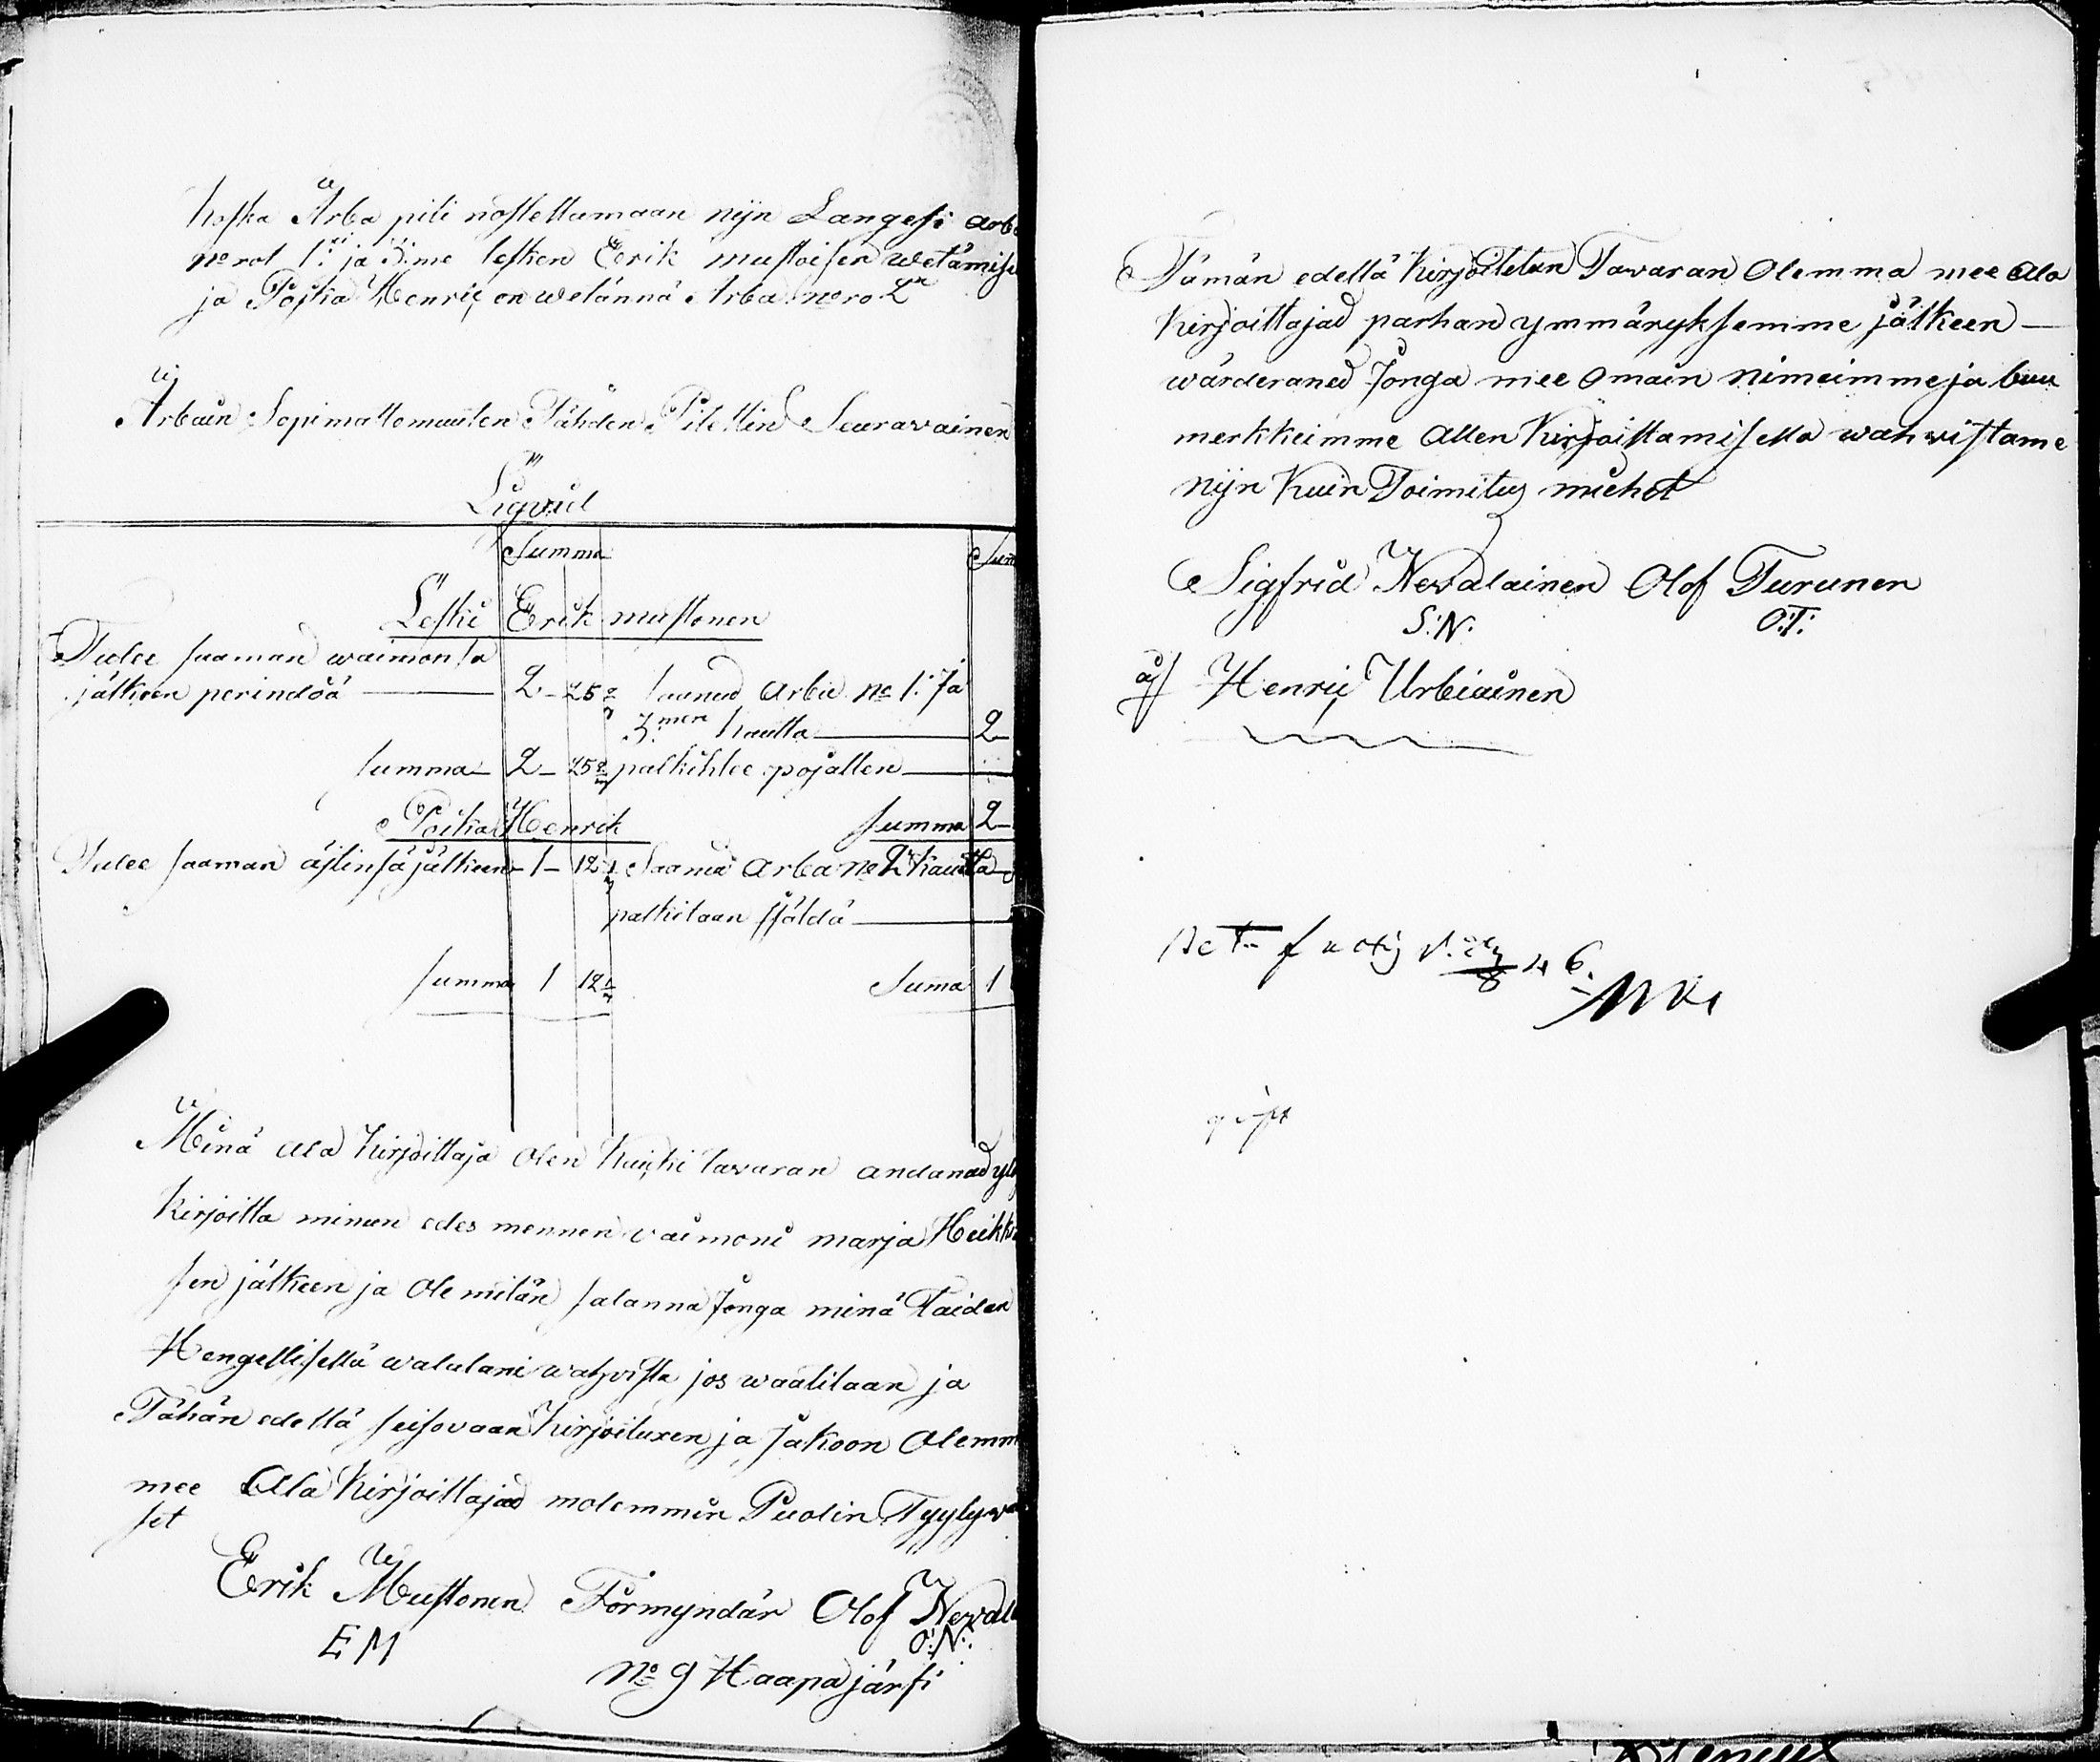 koska Arba piti nostettamaan nijn Langesi arb
No rot 1: ja 3:me lesken Eerik mustoisen wetämise
ja Poika Henric on wetännä Arba No ro 2
Arbain Sopimattomuuten Tähden Pitettin Seurawainen
Liqvid
Summa Sum
Leski Erik mustonen
Tulee saaman waimonsa
jälkeen perindöä 2 - 25 2/7 saanud Arbie No 1: Ja
3:men kautta 2
summa 2 - 25 2/7 palkihtee pojallen
Poika Henrik summa 2
Tulee saaman äjtinsä jälkeen 1 - 12 1/7 Saanud Arba No 2 kautta
palkitaan Isäldä
summa 1 12 1/7 Suma 1
Minä ala kirjoittaja olen kaicki tavaran andanud yl
kirjoitta minun edes mennen vaimoni marja Heikki
sen jälkeen ja ole mitän salanna Jonga minä Taidan
Hengellisellä walalani wahvista jos waatitaan ja
Tähän edellä seisovaan Kirjoituxen ja Jakoon Olemm
mee Ala Kirjoittajad molemmin Puolin Tyyty
set
Erik Mustonen Förmyndär Olof Neval
E M O:N:
No 9 Haapajärfi
Tämän edellä Kirjoitetun Tavaran Olemma mee Ala
Kirjoittajad parhan ymmäryksemme jälkeen
wärderaned Jonga mee Omain Nimeimme ja buu
merkkeimme Allen Kirjoittamisella wahwistame
nijn Kuin Toimitus miehet
Sigfrid Nevalainen Olof Turunen
S:N: O:T:
Henric Urbiainen